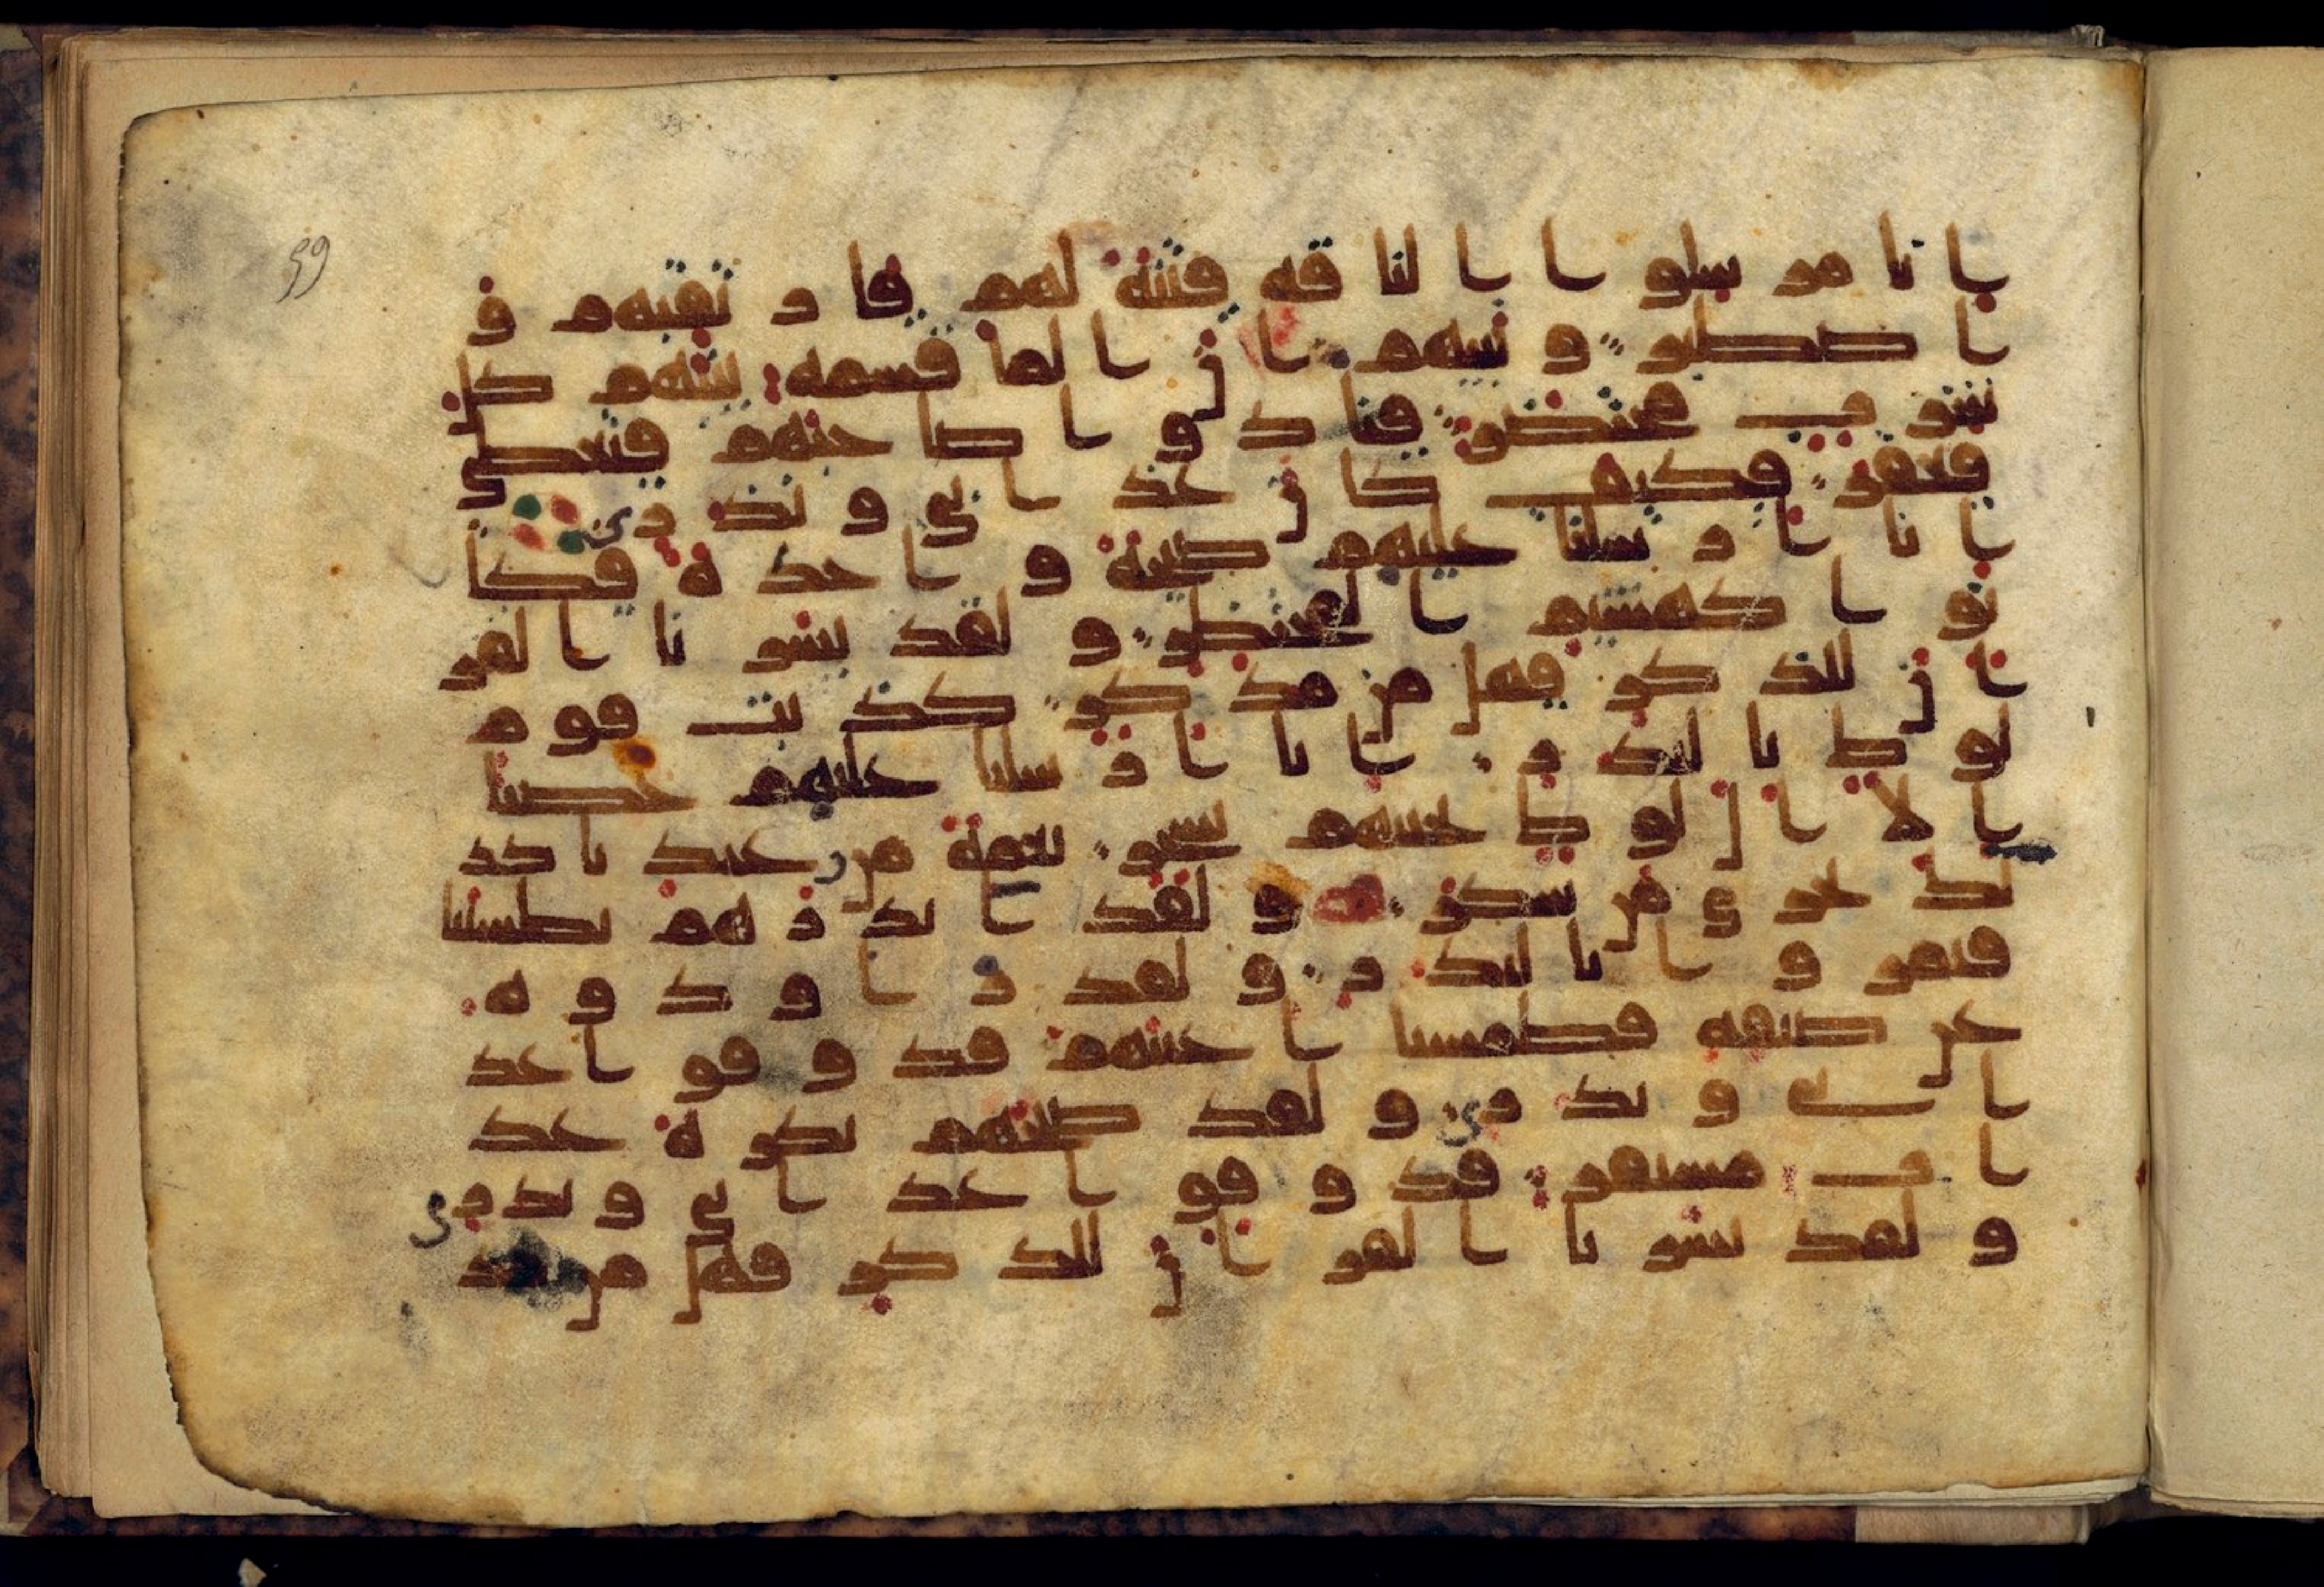 59
انا مرسلوا الناقة فتنة لهم فارتقبهم و
اصطبر ونبيهم ان الما قسمة بينهم كل
شرب محتضر فنادوا صاحبهم فتعطى
فعقر فكيف كان عذابي ونذري
انا ارسلنا عليهم صيحة واحدة فكا
نوا كهشيم المحتظر ولقد يسرنا القر
ان للذكر فهل من مدكر كذبت قوم
لوط بالنذر انا ارسلنا عليهم حصبا
الا ال لوط نجينهم بسحر نعمة من عندنا كذ
لك نجزي من شكر ولقد انذرهم بطشتنا
فتمروا بالنذر ولقد راودوه
عن ضيفه فطمسنا اعينهم فذوقوا عذ
ابي ونذري ولقد صبحهم بكرة عذ
اب مستقر فذوقوا عذابي ونذري
ولقد يسرنا القران للذكر فهل من مد